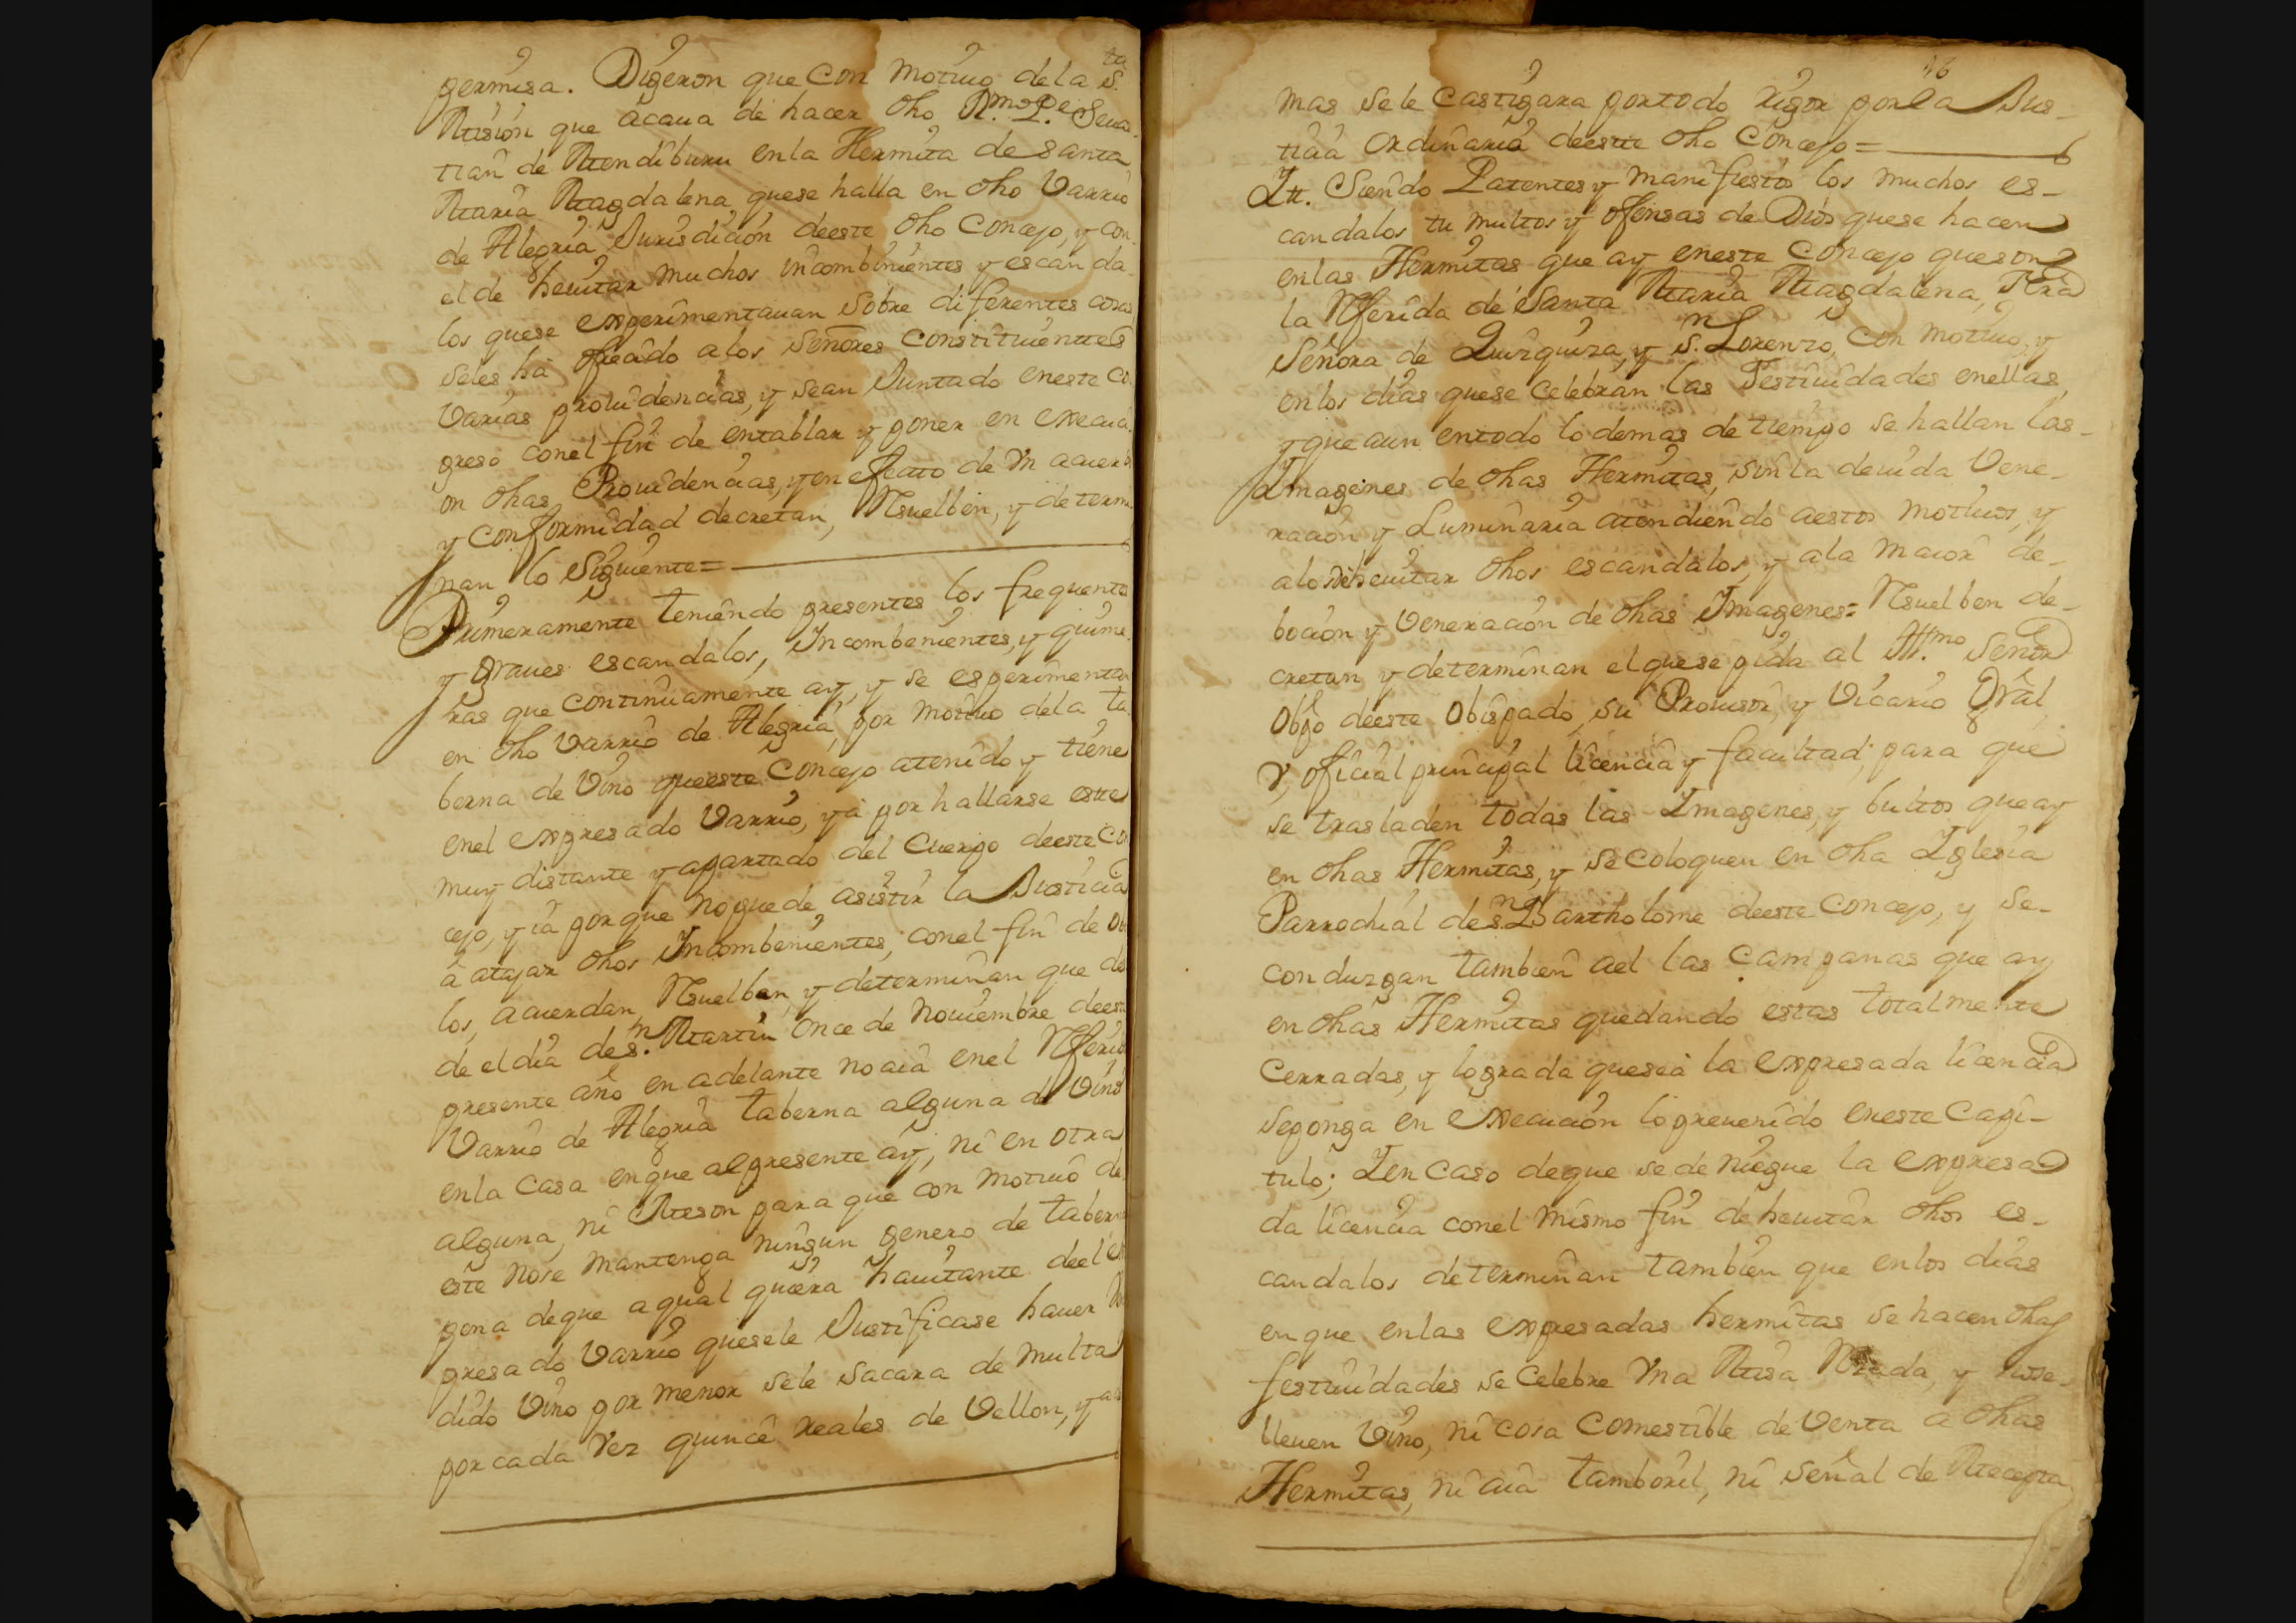 permisa. Digeron que Con motiuo de la S.ta
Mision que acaua de hacer dho R.mo P.e Seuas
tian de Mendiburu en la Hermita de Santa
Maria Magdalena que se halla en dho Varrio
de Alegria Jurisdicion de este dho Concejo, y con
el de heuitar muchos incombinientes y escanda
los que se experimentauan sobre diferentes cosas
se les ha ofrecido a los Señores Constituientes
Varias prouidencias, y se an Juntado en este Co
greso con el fin de entablar y poner en execu
on dhas Prouidencias, y en efecto de Vn acuerdo
y Conformidad decretan, Rsuelben, y determi
nan lo Siguiente=
Primeramente teniendo presentes los frequente
y graues escandalos, Incombenientes, y quime
ras que continuamente ay, y se esperimentan
en dho Varrio de Alegria, por motiuo de la ta
berna de Vino que este Concejo a tenido y tiene
en el expresado Varrio, ya por hallarse este
muy distante y apartado del Cuerpo de este Con
cejo, y ia porque no puede asistir la Justicia
a atajar dhos Incombenientes, con el fin de Ob
los, acuerdan, Rsuelben, y determinan que des
de el dia de S.n Martin Once de Nouiembre de este
presente año en adelante no aia en el Rferido
Varrio de Alegria taberna alguna de Vino
en la Casa en que al presente ay, ni en otra
alguna, ni Meson para que con motiuo de
este no se mantenga ningun genero de taberna
pena de que a qual quiera hauitante de el ex
presado Varrio que se le Justificase hauer Ven
dido Vino por menor se le sacara de Multa
por cada Vez quince reales de Vellon, y a
46
mas se le Castigara por todo rigor por la Jus-
ticia Ordinaria de este dho Concejo=
Itt. Siendo Patentes y manifiesto los muchos es-
candalos tumultos y ofensas de Dios que se hacen
en las Hermitas que ay en este Concejo que son
la Rferida de Santa Maria Magdalena, Nra
Señora de Quizquiza, y S.n Lorenzo, Con motiuo, y
en los dias que se celebran las Festiuidades en ellas
y que aun en todo lo demas de tiempo se hallan las-
Imagenes de dhas Hermitas, sin la deuida Vene-
racion y Luminaria atendiendo a estos motiuos, y
a los de heuitar dhos escandalos, y a la maior de-
bocion y Veneracion de dhas Imagenes= Rsuelben de-
cretan y determinan el que se pida al Ill.mo Señor
Obpo de este Obispado, su Prouisor, y Vicario Gral,
Y, oficial principal licencia y facultad, para que
se trasladen todas las Imagenes, y bultos que ay
en dhas Hermitas, y se coloquen en dha Iglesia
Parrochial de S.n Bartholome de este Concejo, y se-
conduzgan tambien a el las Campanas que ay
en dhas Hermitas quedando estas totalmente
Cerradas, y lograda que sea la expresada licencia
se ponga en execucion lo preuenido en este Capi-
tulo; I en Caso de que se deniegue la expresa
da licencia con el mismo fin de heuitar dhos es-
candalos determinan tambien que en los dias
en que en las expresadas hermitas se hacen dhas
festiuidades se Celebre Vna Misa Rzada, y no se-
lleuen Vino, ni cosa Comestible de Venta a dhas
Hermitas, ni aia tamboril, ni señal de